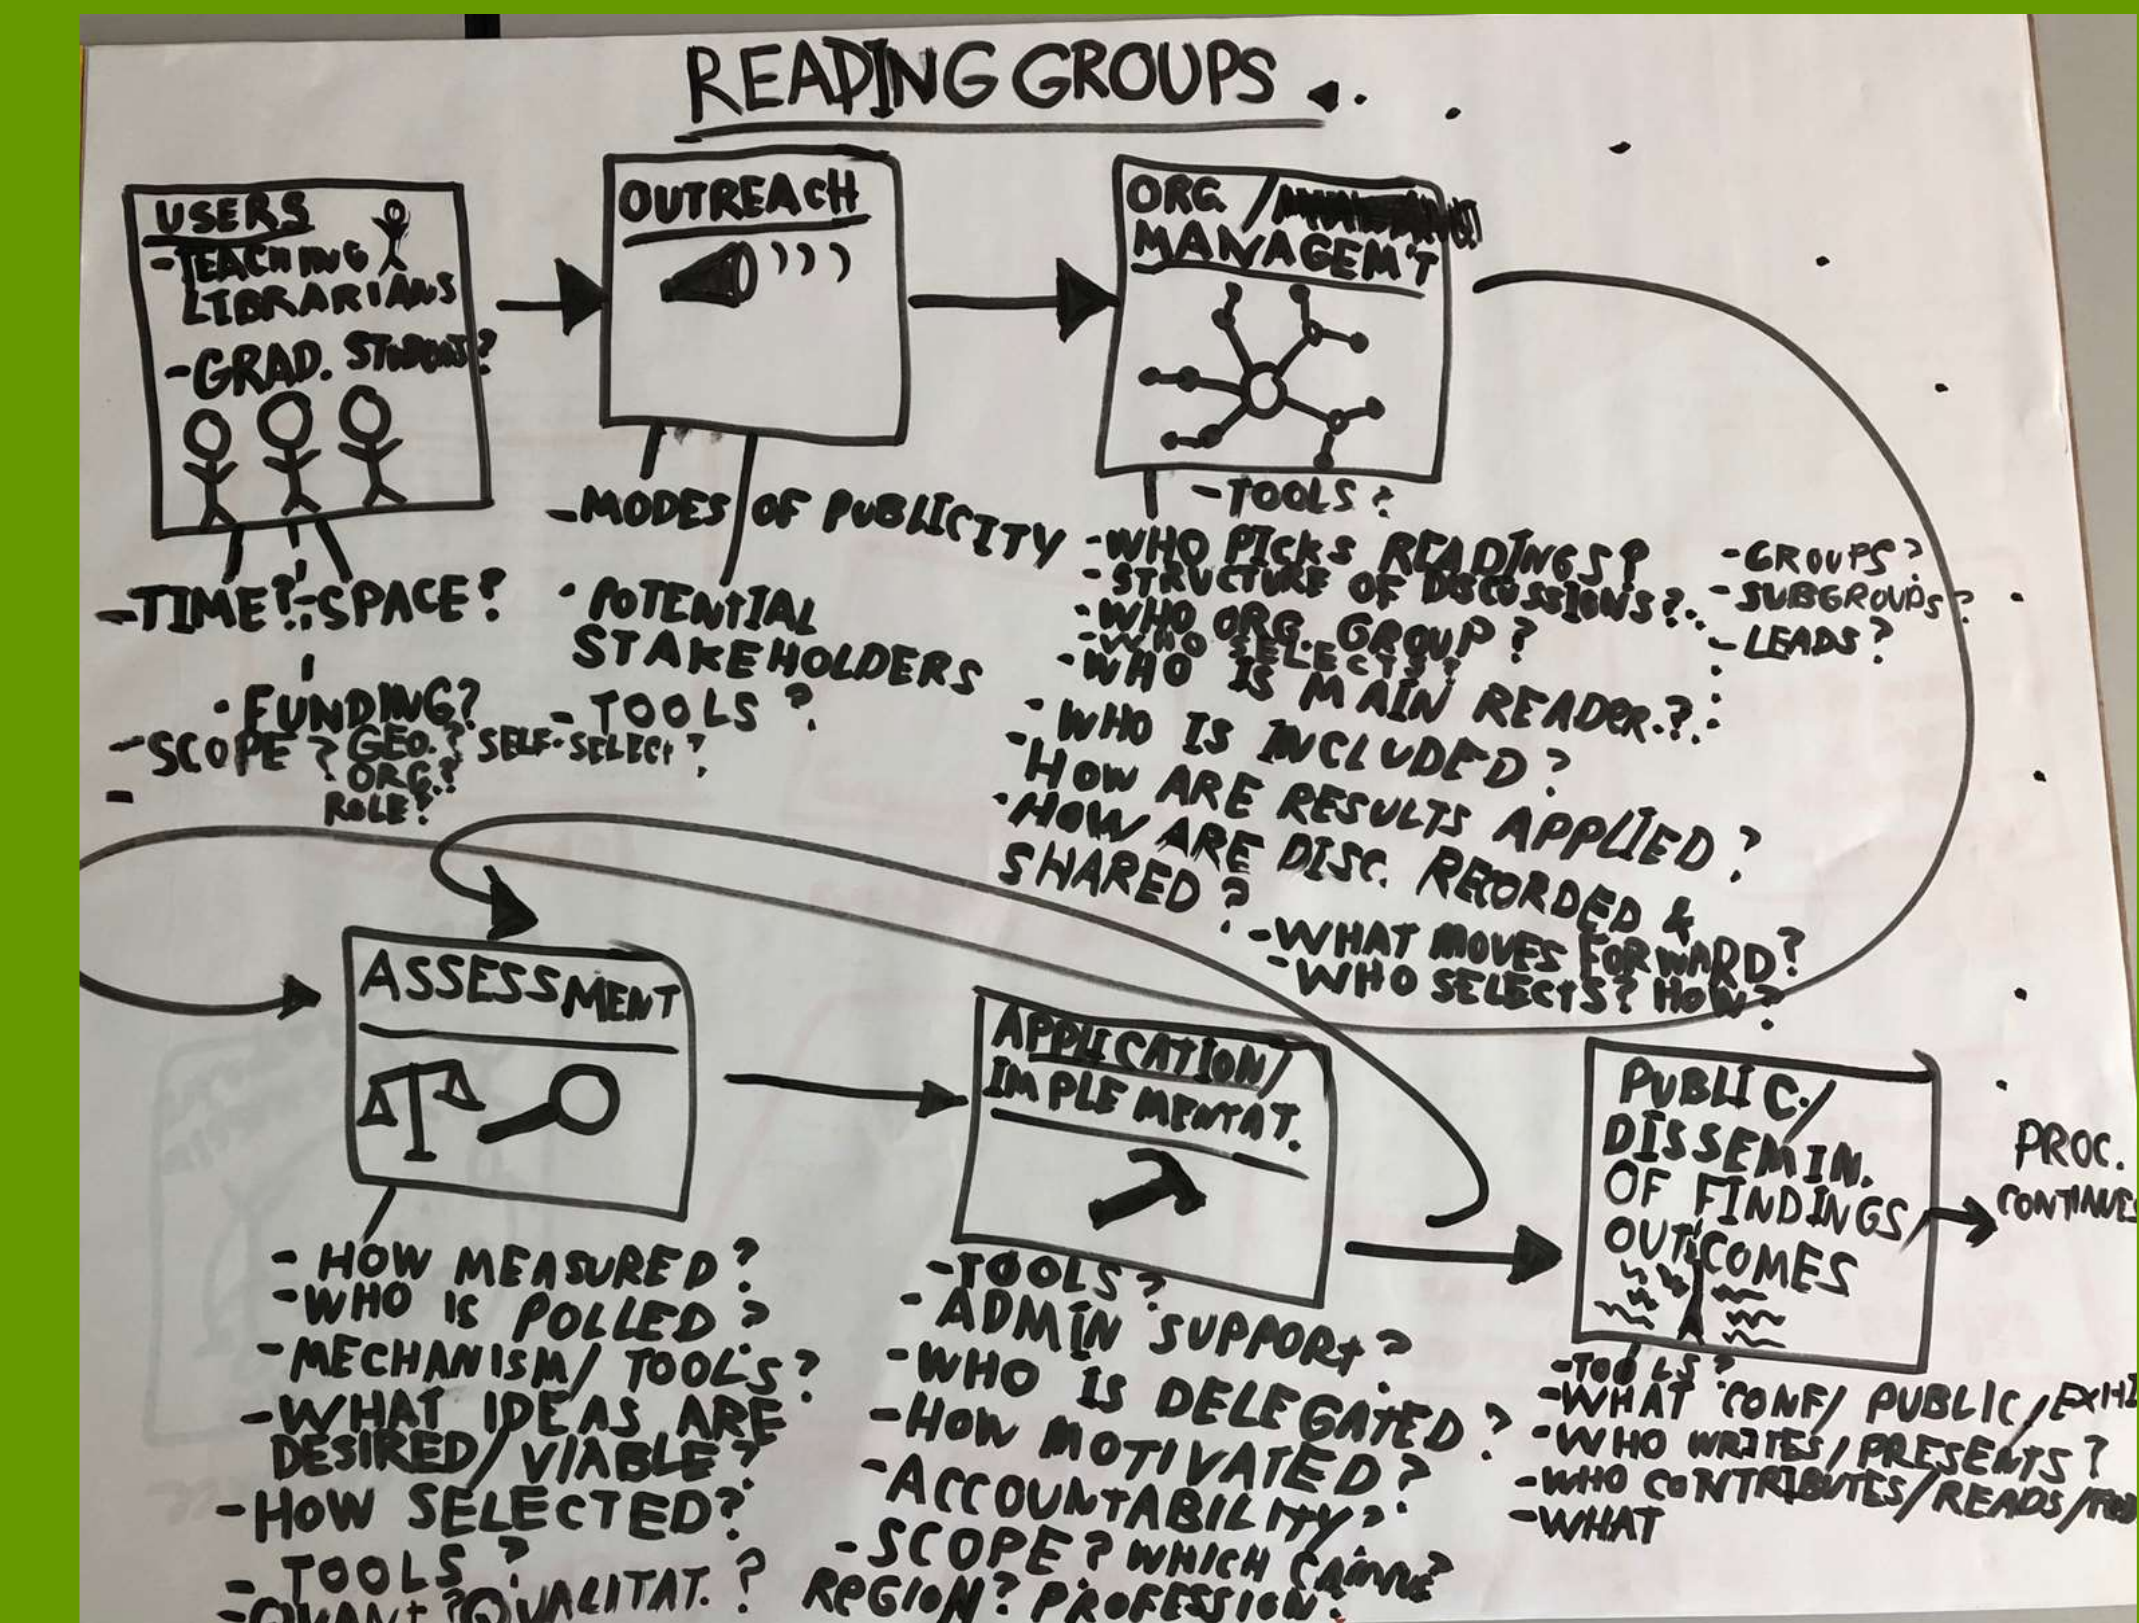 READING GROUPS
USERS
-TEACHING
LIBRARIANS
-GRAD. STUDENTS?
-TIME?
-SPACE?
• FUNDING?
-SCOPE? GEO.? SELF-SELECT?
ORG.?
ROLE?
OUTREACH
-MODES OF PUBLICITY
• POTENTIAL
STAKEHOLDERS
- TOOLS?
ORG /
MANAGEM'T
-TOOLS?
-WHO PICKS READINGS?
-STRUCTURE OF DISCUSSIONS?
-GROUPS?
-SUBGROUPS?
-LEADS?
•WHO ORG. GROUP?
-WHO SELECTS?
•WHO IS MAIN READER.?
•WHO IS INCLUDED?
•HOW ARE RESULTS APPLIED?
•HOW ARE DISC. RECORDED &
SHARED?
-WHAT MOVES FORWARD?
-WHO SELECTS? HOW?
ASSESSMENT
- HOW MEASURED?
-WHO IS POLLED?
-MECHANISM/ TOOLS?
-WHAT IDEAS ARE
DESIRED/VIABLE?
-HOW SELECTED?
- TOOLS?
-QUANT? QUALITAT.?
APPLICATION/
IMPLEMENTAT.
-TOOLS?
-ADMIN SUPPORT?
-WHO IS DELEGATED?
-HOW MOTIVATED?
-ACCOUNTABILITY?
-SCOPE? WHICH
REGION? PROFESSION?
PUBLIC./
DISSEMIN.
OF FINDINGS/
OUTCOMES
-TOOLS?
-WHAT CONF/ PUBLIC/EXHI
-WHO WRITES/PRESENTS?
-WHO CONTRIBUTES/READS/
-WHAT
PROC.
CONTINUES